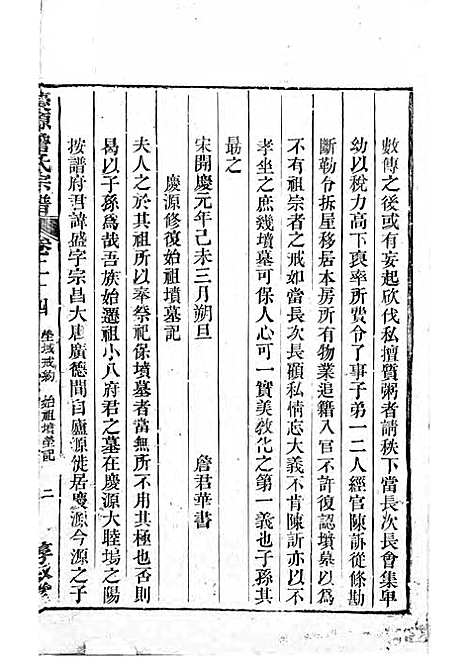 數傳之後或有妄起欣伐私擅質粥者請秩下當長次長會集卑
幼以稅力高下裒率所費令了事子弟一二人經官陳訴從條勘
斷勒令拆屋移居本房所有物業追籍入官不許復認墳墓以為
不有祖宗者之戒如當長次長顧私情忘大義不肯陳訴亦以不
孝坐之庶幾墳墓可保人心可一實美敎化之第一義也子孫其
最之
宋開慶元年己未三月朔旦 詹君華書
慶源修復始祖墳墓記
夫人之於其祖所以奉祭祀保墳墓者當無所不用其極也否則
曷以子孫為哉吾族始遷祖小八府君之墓在慶源大睦塲之陽
按譜府君諱盛字宗昌大唐廣德間自廬源徙居慶源今源之子
慶源詹氏宗譜 卷二十四 塋域戒約 始祖墳墓記 二